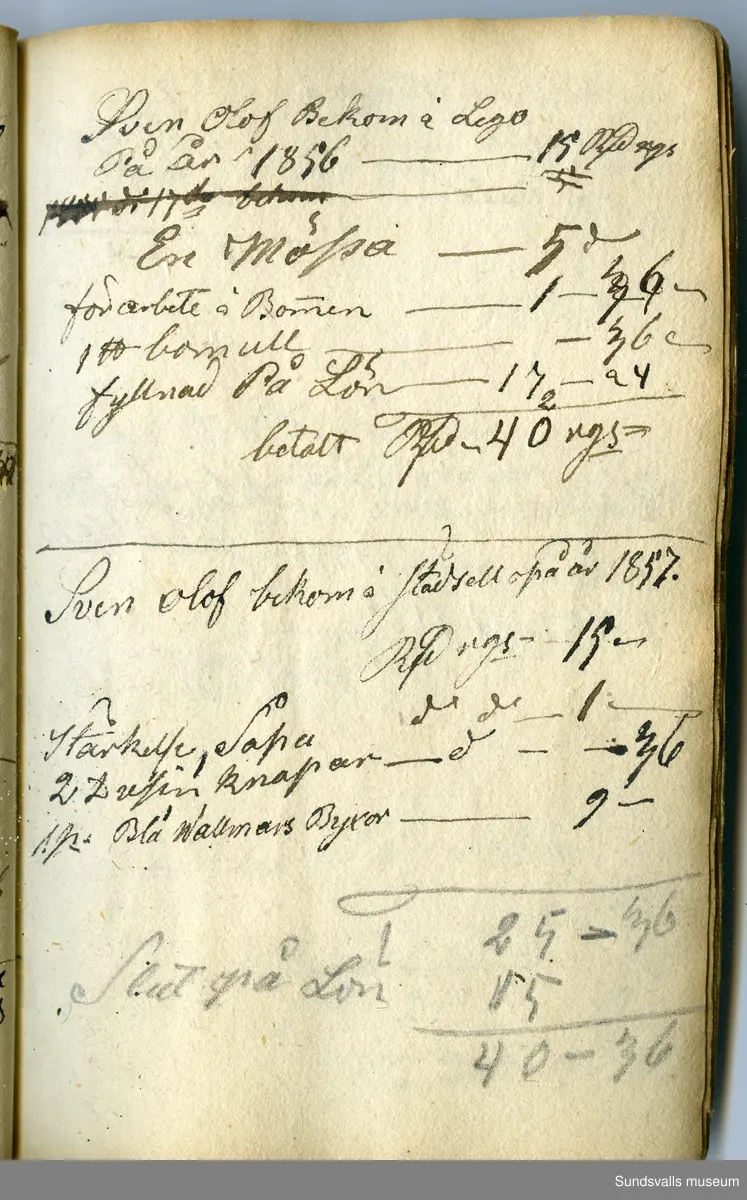 Sven Olof Bekom i Lego
På år 1856 — 15 Rd rgs
En Mössa — 5 d
förarbete i Bomen — 1 — 36
1 ℔ bomull — — 36
fyllnad På Lön — 17 — 24
betalt Rd 40 rgs
Sven Olof bekom i städsell på år 1857.
Rd rgs 15
Stärkelse, Såpa d d — 1
2 Dusin Knapar — d — — 36
1 p. Blå Wallmars Byxor — 9 —
25 — 36
Slut på Lön 15
40 — 36
Sundsvalls museum